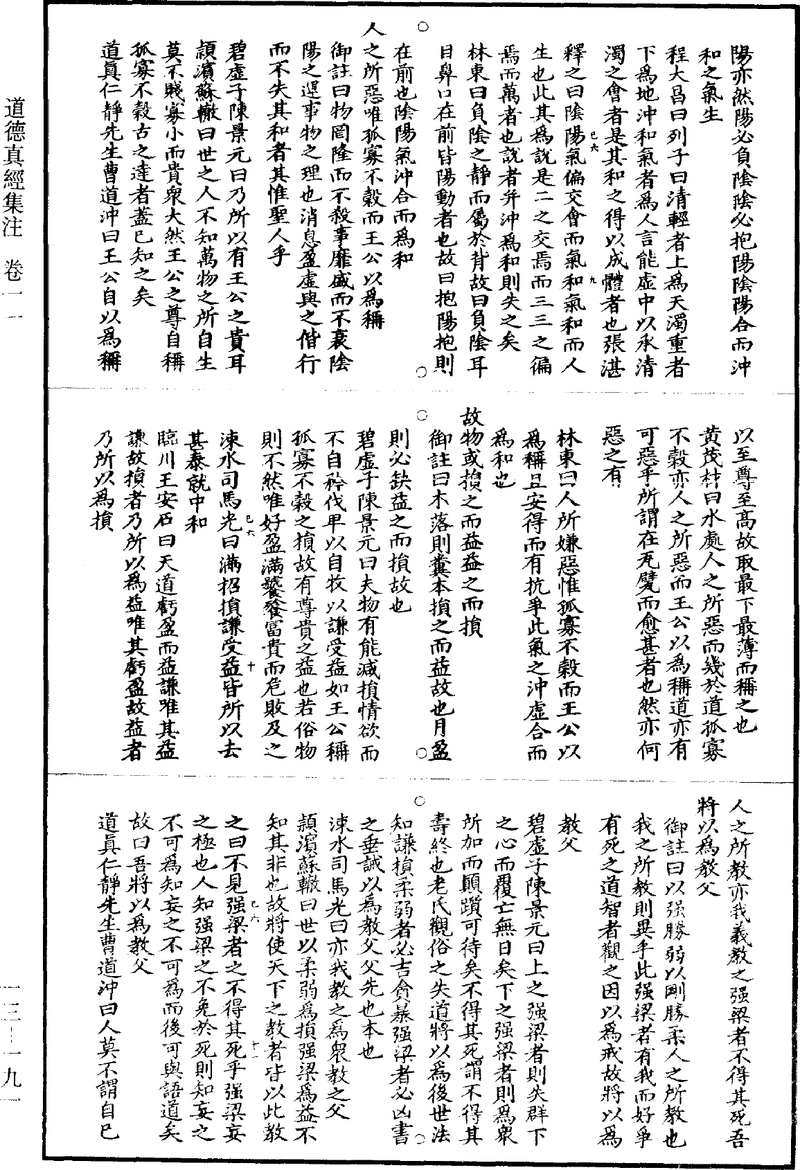 陽亦然陽必負陰陰必抱陽陰陽合而沖
和之氣生
程大昌曰列子曰清輕者上爲天濁重者
下爲地沖和氣者爲人言能虛中以承清
濁之會者是其和之得以成體者也張湛
釋之曰陰陽氣偏交會而氣和氣和而人
生也此其爲說是二之交焉而三三之徧
焉而萬者也說者并沖爲和則失之矣
林東曰負陰之靜而屬於背故曰負陰耳
目鼻口在前皆陽動者也故曰抱陽抱則
在前也陰陽氣沖合而爲和
人之所惡唯孤寡不穀而王公以爲稱
御註曰物罔隆而不殺事靡盛而不衰陰
陽之運事物之理也消息盈虛與之偕行
而不失其和者其惟聖人乎
碧虛子陳景元曰乃所以有王公之貴耳
頴濱蘇轍曰世之人不知萬物之所自生
莫不賤寡小而貴衆大然王公之尊自稱
孤寡不穀古之達者蓋已知之矣
道眞仁靜先生曹道沖曰王公自以爲稱
以至尊至高故取最下最薄而稱之也
黃茂材曰水處人之所惡而幾於道孤寡
不穀亦人之所惡而王公以爲稱道亦有
可惡乎所謂在瓦甓而愈甚者也然亦何
惡之有
林東曰人所嫌惡惟孤寡不穀而王公以
爲稱且安得而有抗爭此氣之沖虛合而
爲和也
故物或損之而益益之而損
御註曰木落則糞本損之而益故也月盈
則必缺益之而損故也
碧虛子陳景元曰夫物有能減損情欲而
不自矜伐卑以自牧以謙受益如王公稱
孤寡不穀之損故有尊貴之益也若俗物
則不然唯好盈滿饕餮富貴而危敗及之
涑水司馬光曰滿招損謙受益皆所以去
甚泰就中和
臨川王安石曰天道虧盈而益謙唯其益
謙故損者乃所以爲益唯其虧盈故益者
乃所以爲損
人之所教亦我義教之强梁者不得其死吾
將以爲教父
御註曰以强勝弱以剛勝柔人之所教也
我之所教則異乎此强梁者有我而好爭
有死之道智者觀之因以爲戒故將以爲
教父
碧虛子陳景元曰上之强梁者則失群下
之心而覆亡無日矣下之强梁者則爲衆
所加而顚躓可待矣不得其死謂不得其
壽終也老氏觀俗之失道將以爲後世法
知謙損柔弱者必吉貪暴强梁者必凶書
之垂誡以爲教父父先也本也
涑水司馬光曰亦我教之爲衆教之父
頴濱蘇轍曰世以柔弱爲損强梁爲益不
知其非也故將使天下之教者皆以此教
之曰不見强梁者之不得其死乎强梁妄
之極也人知强梁之不免於死則知妄之
不可爲知妄之不可爲而後可與語道矣
故曰吾將以爲教父
道眞仁靜先生曹道沖曰人莫不謂自已
道德真經集注 卷一一
一三—一九一